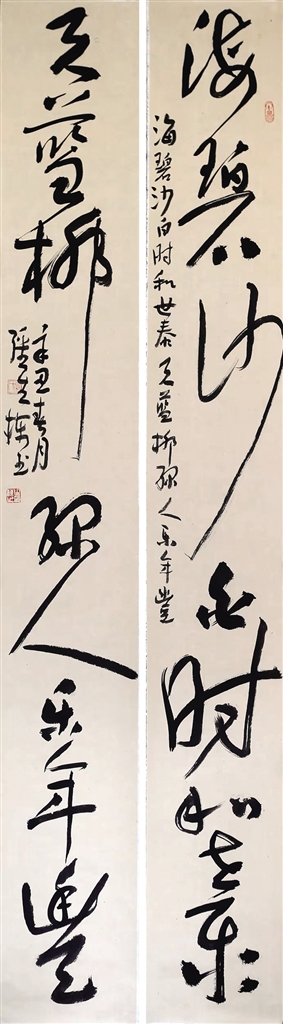 海碧沙白时和世泰
海碧沙白时和世泰天蓝柳绿人乐年丰
天蓝柳绿人乐年豐
辛丑春月